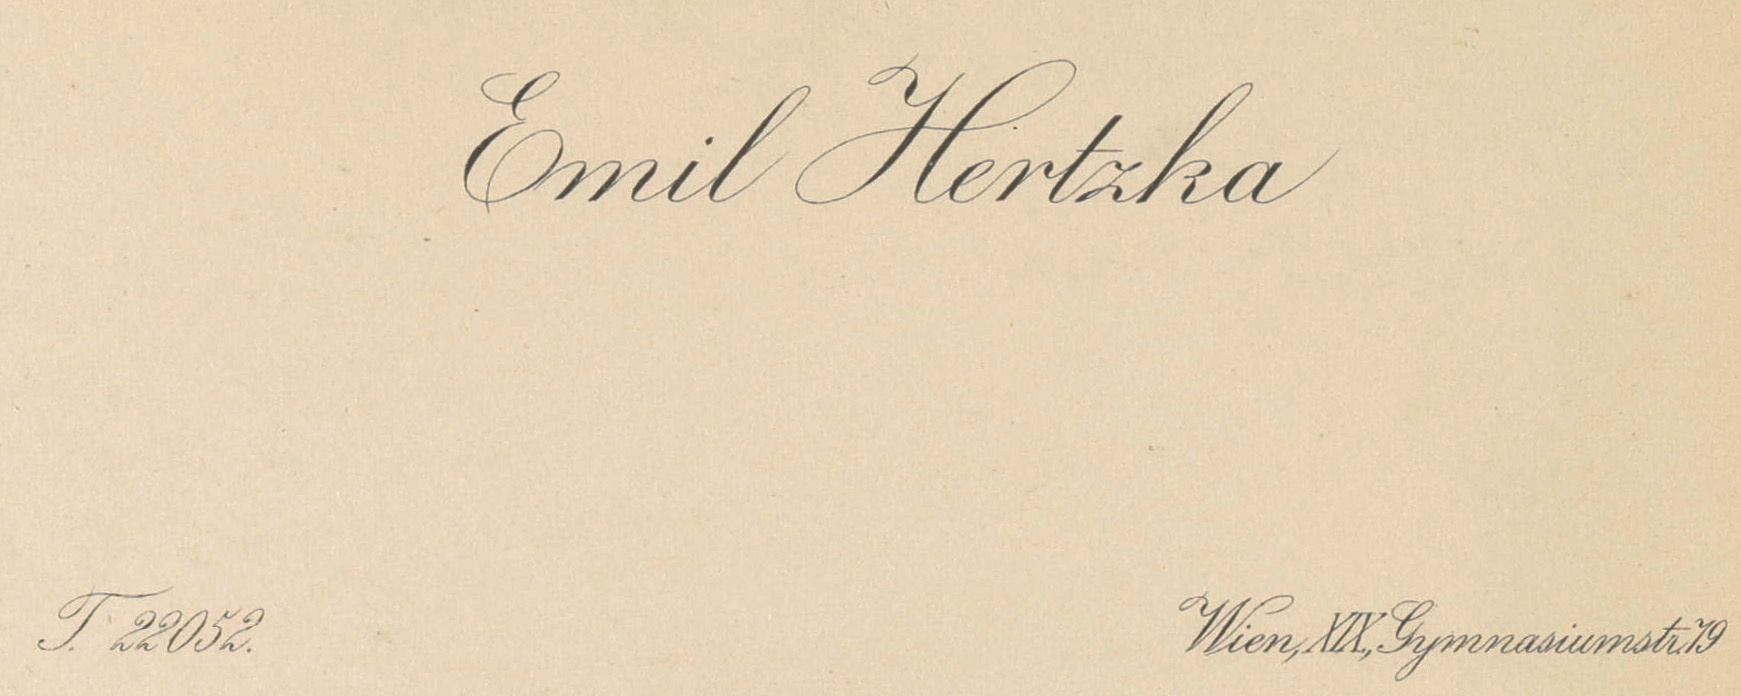 Emil Hertzka
T. 22052.
Wien, XIX, Gymnasiumstr. 79